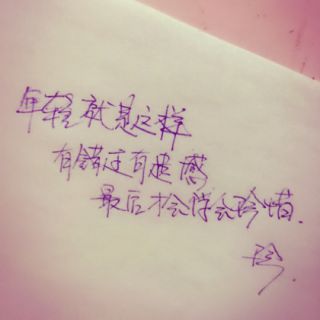 年轻就是这样
有错过有遗憾
最后才会学会珍惜.
珍.